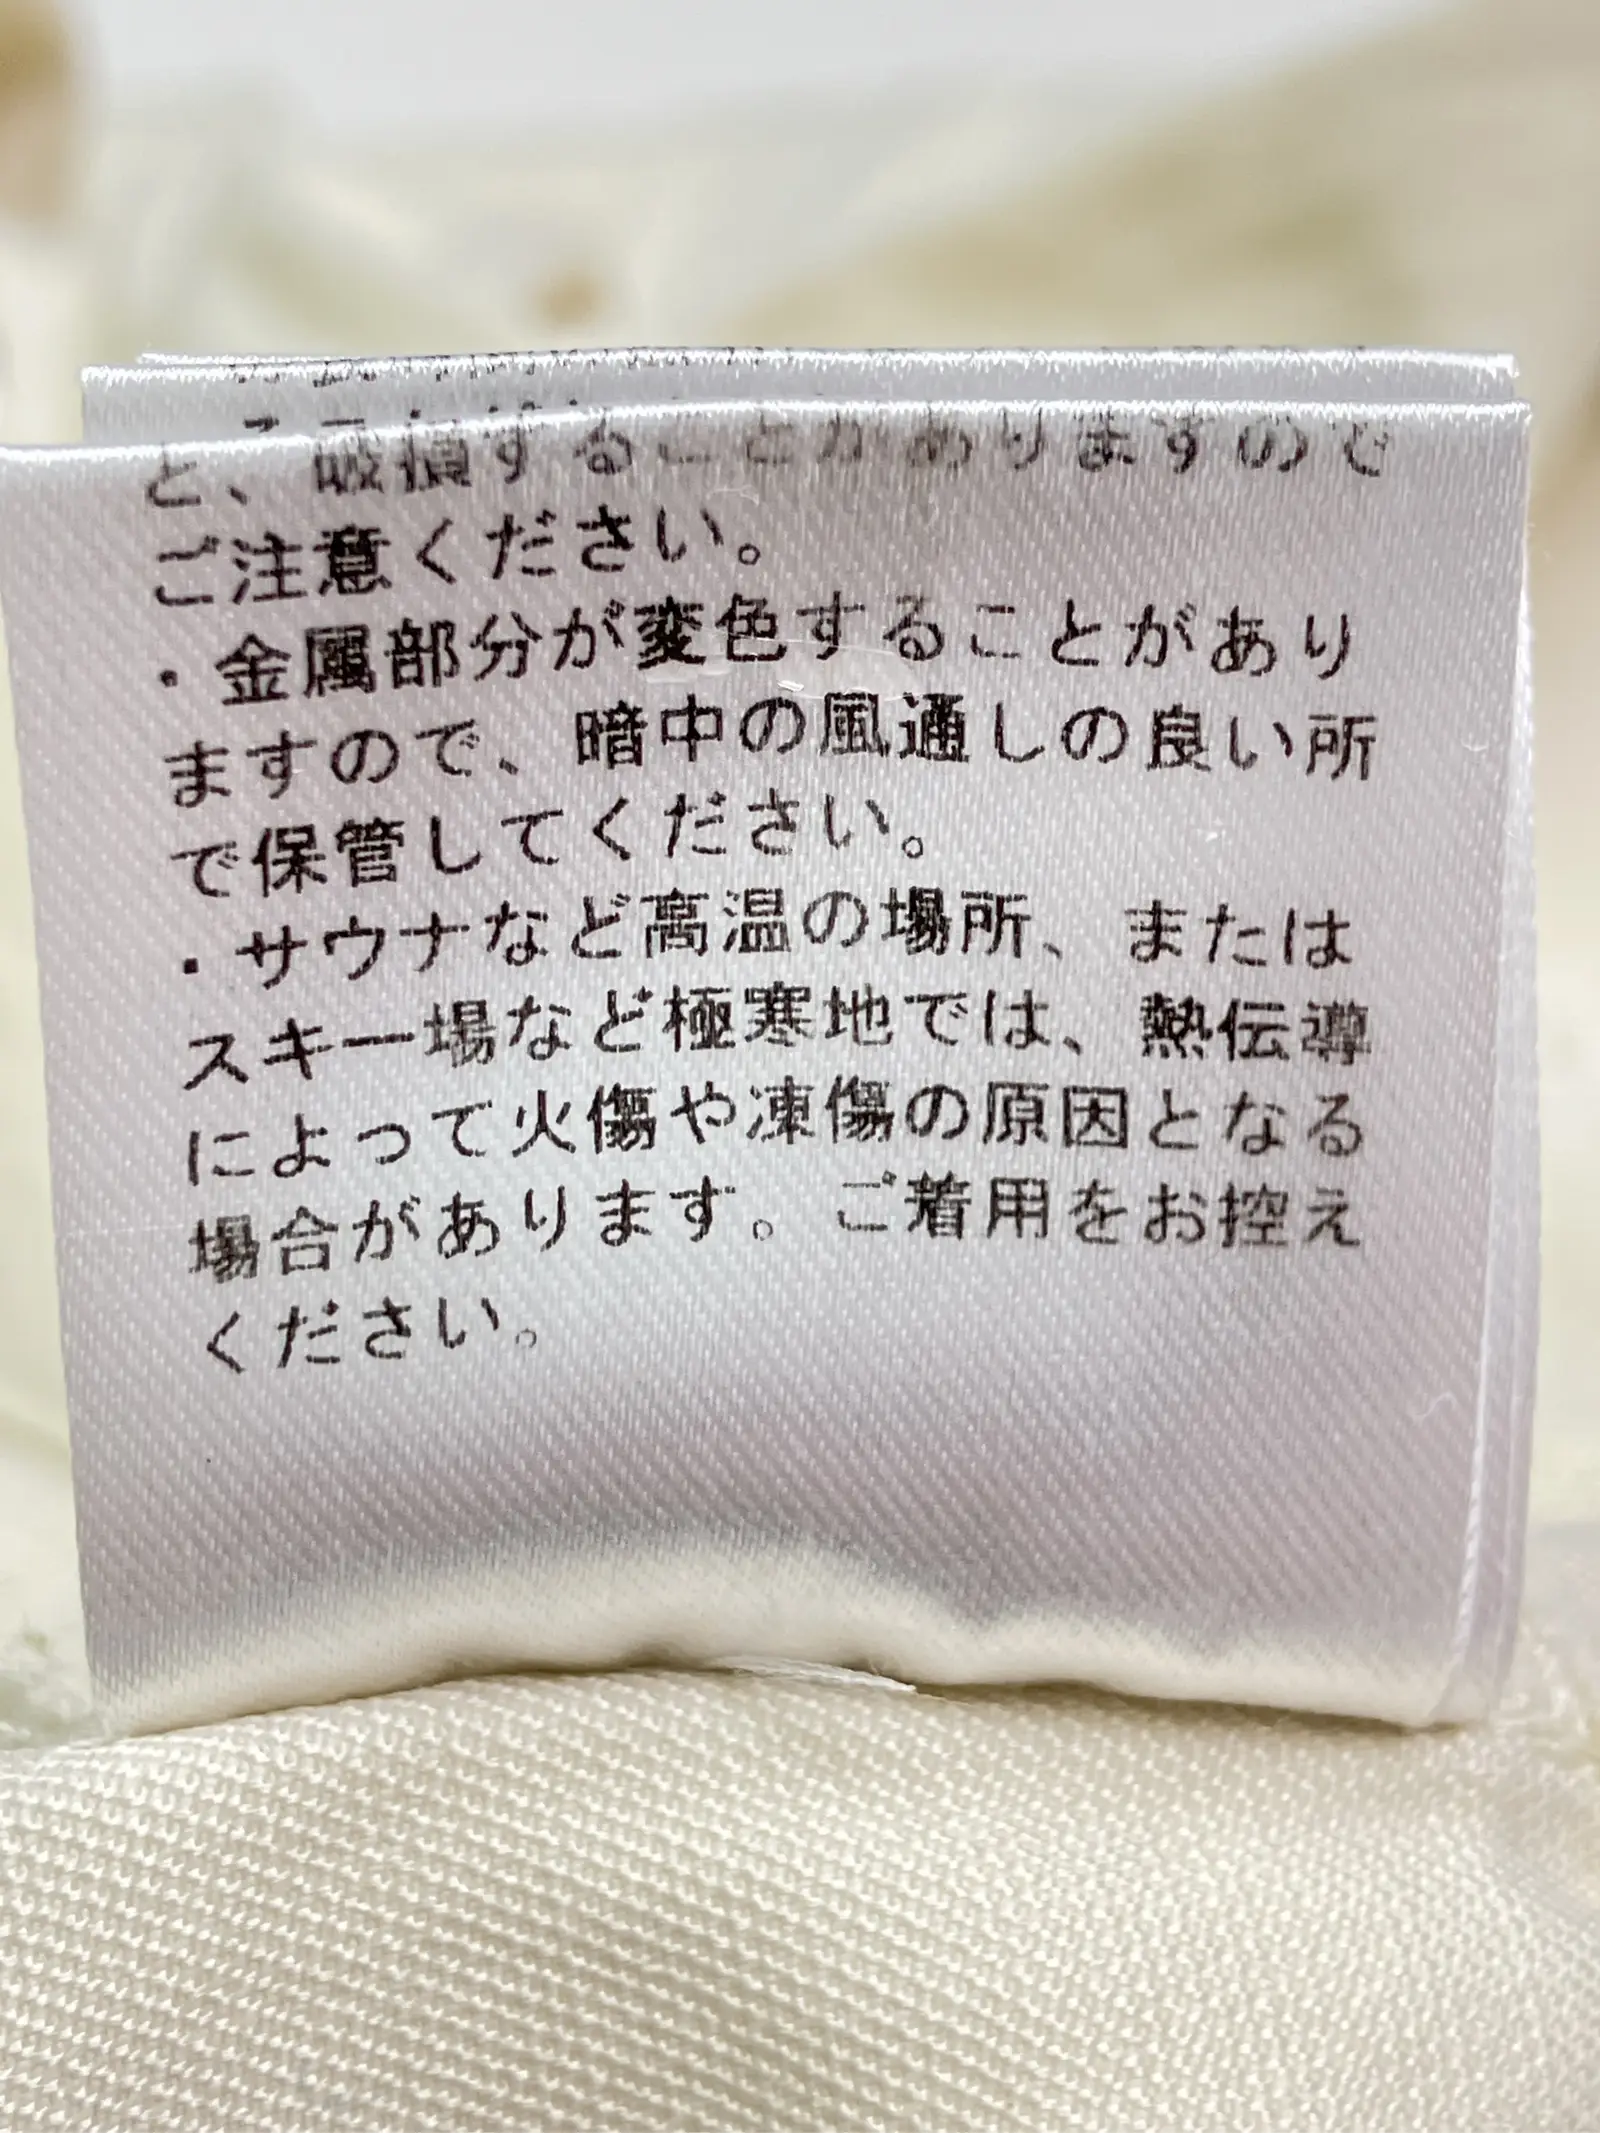 と、破損することがありますので
ご注意ください。
・金属部分が変色することがあり
ますので、暗中の風通しの良い所
で保管してください。
・サウナなど高温の場所、または
スキー場など極寒地では、熱伝導
によって火傷や凍傷の原因となる
場合があります。ご着用をお控え
ください。